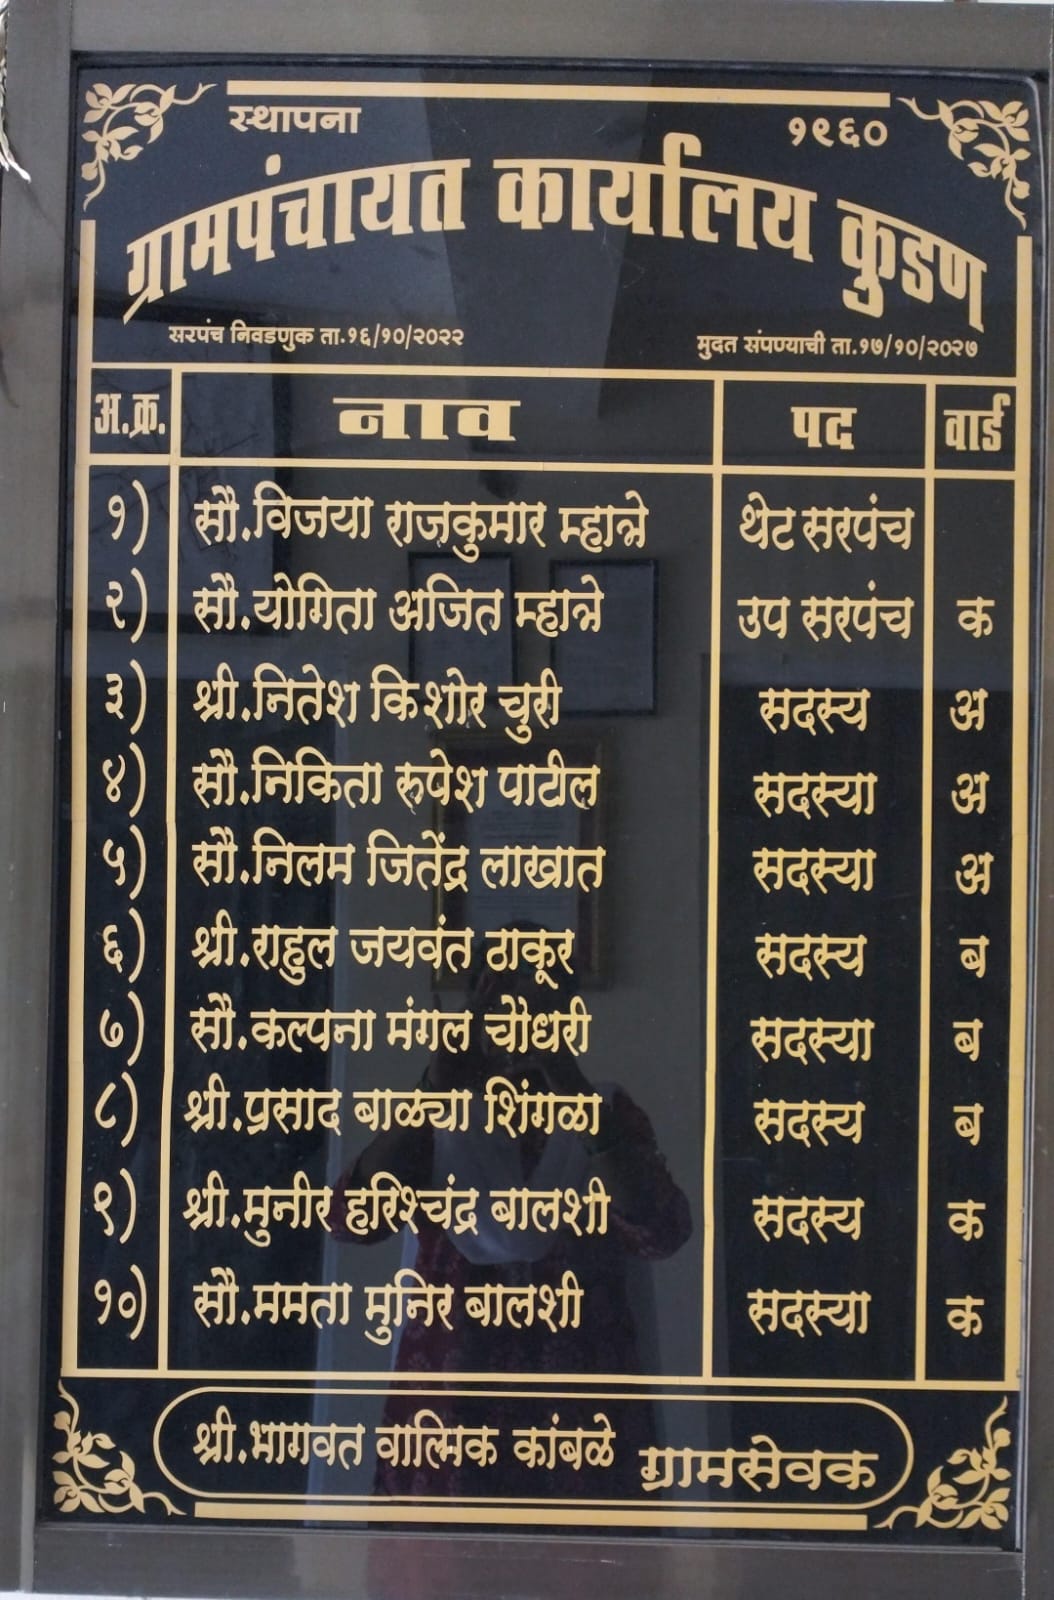 स्थापना १९६०
ग्रामपंचायत कार्यालय कुडण
सरपंच निवडणुक ता.१६/१०/२०२२ मुदत संपण्याची ता.१७/१०/२०२७
अ.क्र. नाव पद वार्ड
१) सौ.विजया राजकुमार म्हात्रे थेट सरपंच
२) सौ.योगिता अजित म्हात्रे उप सरपंच क
३) श्री.नितेश किशोर चुरी सदस्य अ
४) सौ.निकिता रुपेश पाटील सदस्या अ
५) सौ.निलम जितेंद्र लाखात सदस्या अ
६) श्री.राहुल जयवंत ठाकूर सदस्य ब
७) सौ.कल्पना मंगल चौधरी सदस्या ब
८) श्री.प्रसाद बाळ्या शिंगळा सदस्य ब
९) श्री.मुनीर हरिश्चंद्र बालशी सदस्य क
१०) सौ.ममता मुनिर बालशी सदस्या क
श्री.भागवत वाल्मिक कांबळे ग्रामसेवक